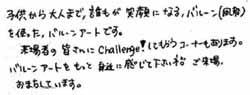 子供から大人まで、誰もが笑顔になる、バルーン(風船)
を使った、バルーンアートです。
来場者の皆さんにChallenge!してもらうコーナーもあります。
バルーンアートをもっと身近に感じて下さい ご来場、
おまちしています。